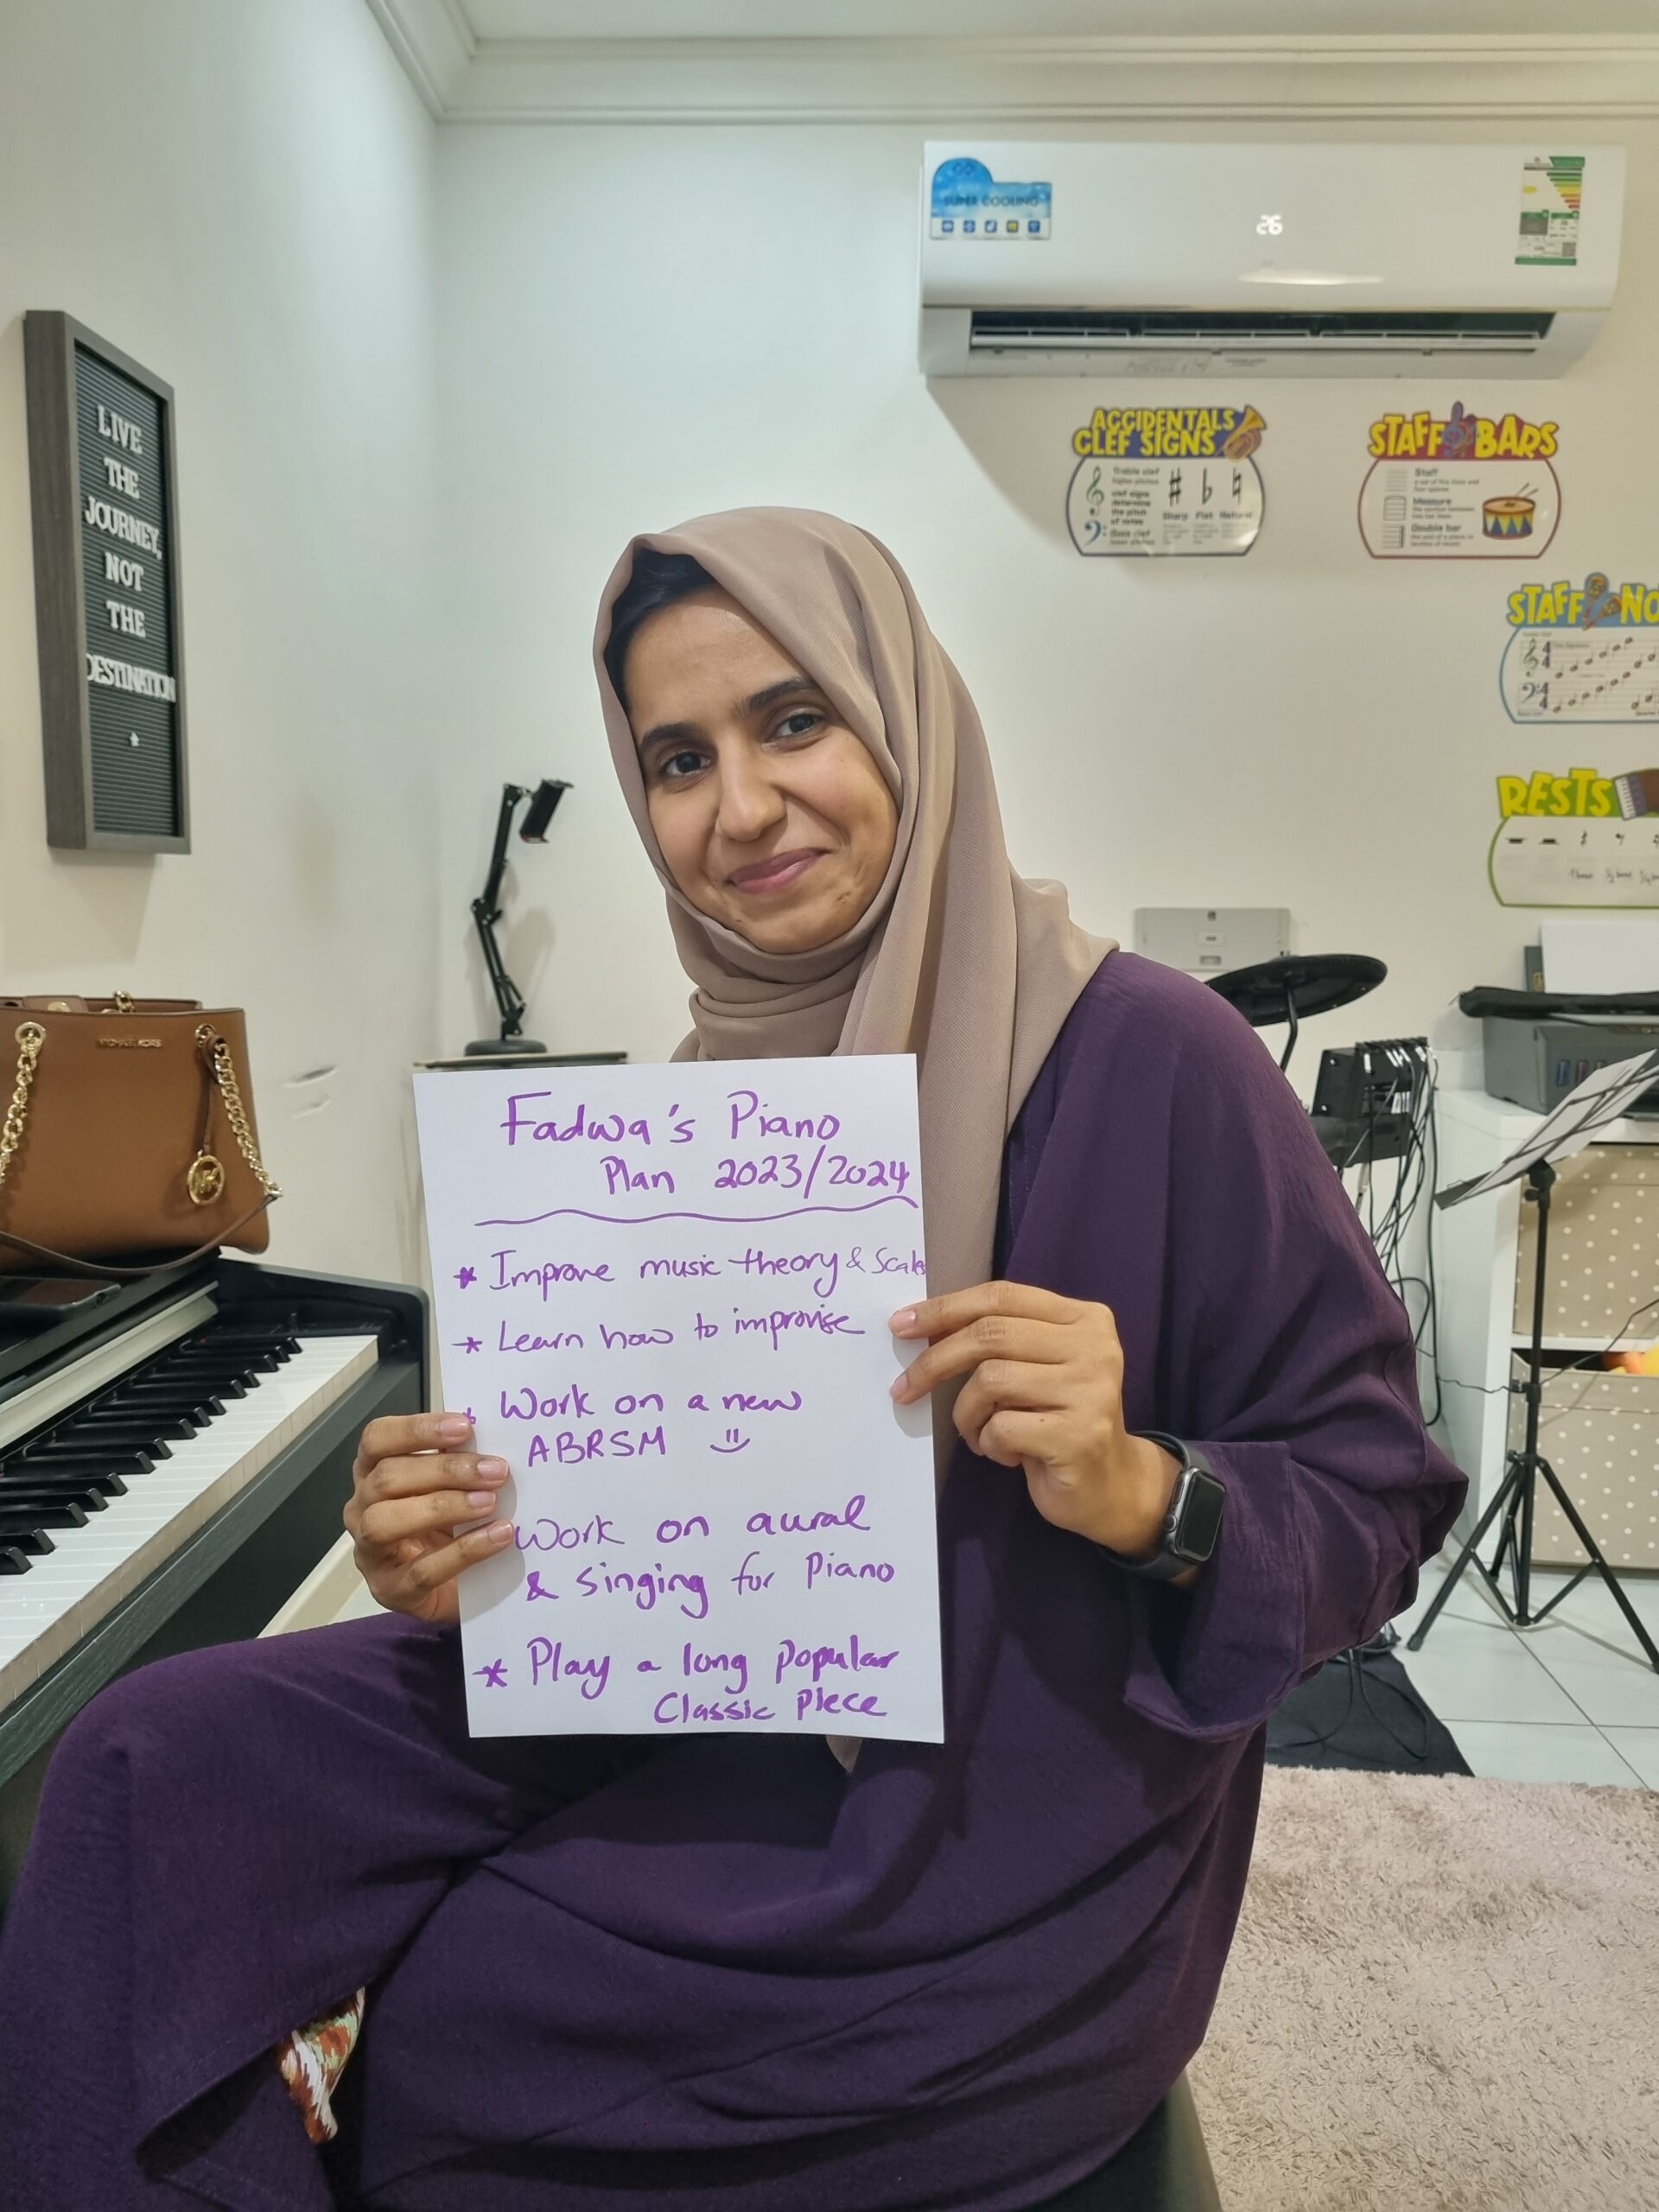 LIVE
THE
JOURNEY,
NOT
THE
DESTINATION
SUPER COOLING
26
ACCIDENTALS
CLEF SIGNS
Treble clef
higher pitches
clef signs
determine
the pitch
of notes
Bass clef
lower pitches
Sharp Flat Natural
STAFF BARS
Staff
Measure
Double bar
STAFF NO
RESTS
MICHAEL KORS
MK
Fadwa's Piano
Plan 2023/2024
* Improve music theory & Scales
* Learn how to improvise
* Work on a new
ABRSM
Work on aural
& singing for Piano
* Play a long popular
Classic Piece